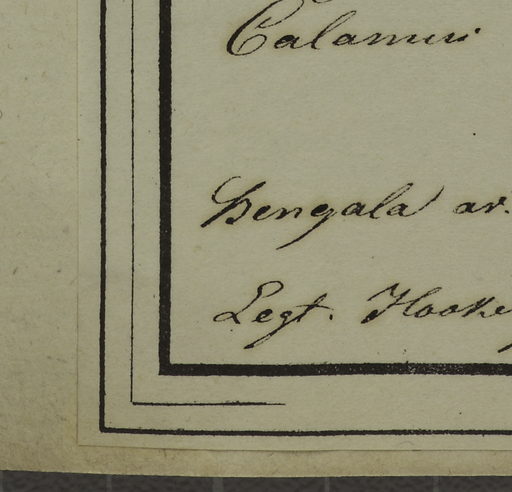 Calamus
Bengala or.
Legt. Hooker